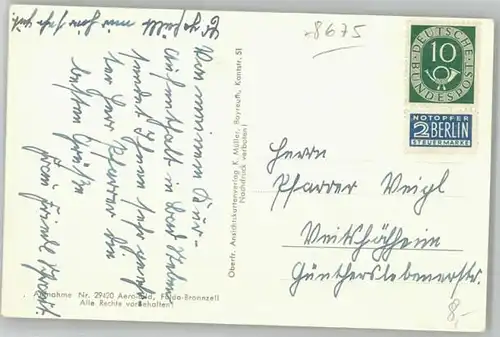 Es gefällt mir hier sehr gut.
8675
Von meinem Kur-
aufenthalt in Bad
sendet Ihnen sehr
Herr Pfarrer die
besten Grüße
Ihre
DEUTSCHE
BUNDESPOST
10
NOTOPFER
2 BERLIN
STEUERMARKE
Herrn
Pfarrer Veigl
Veitshöchheim
Günterslebenerstr.
8,-
Oberfr. Ansichtskartenverlag K. Müller, Bayreuth, Kantstr. 51
Nachdruck verboten!
Nr. 29400 Aero-Bild, Fulda-Bronnzell
Alle Rechte vorbehalten!